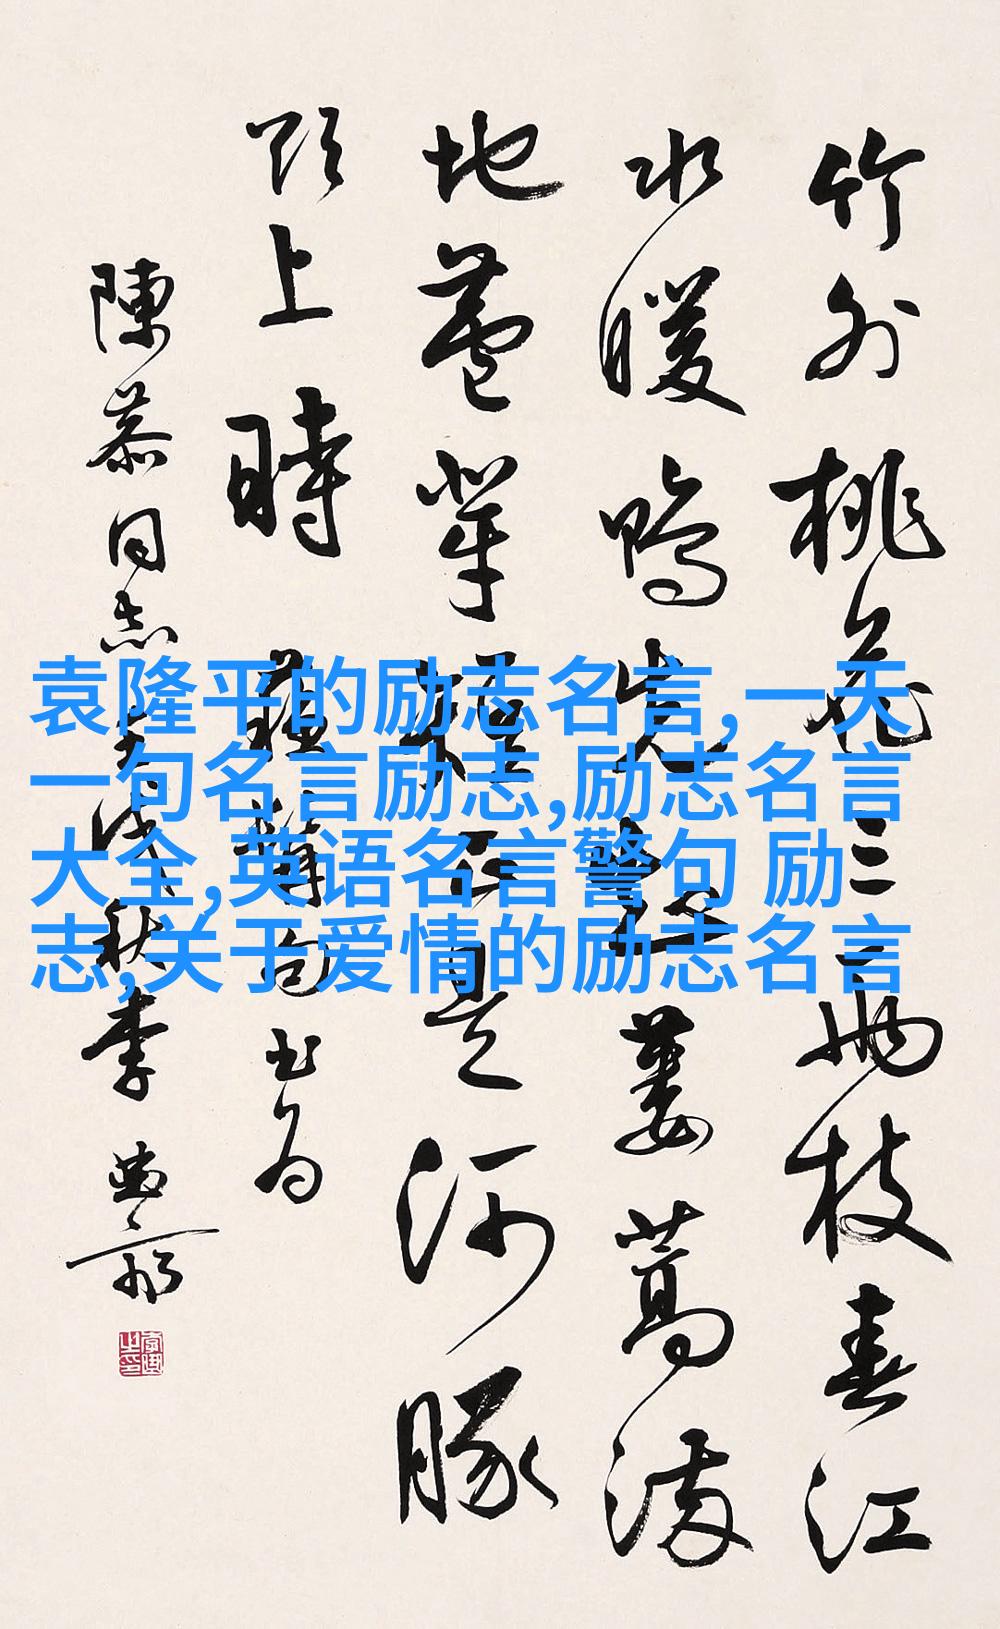 竹外桃花三兩枝春江
水暖鴨先知蔞蒿滿
地蘆芽短正是河豚
欲上時 蘇軾句書為
陳同志秋李
袁隆平的励志名言,一天
一句名言励志,励志名言
大全,英语名言警句 励
志,关于爱情的励志名言